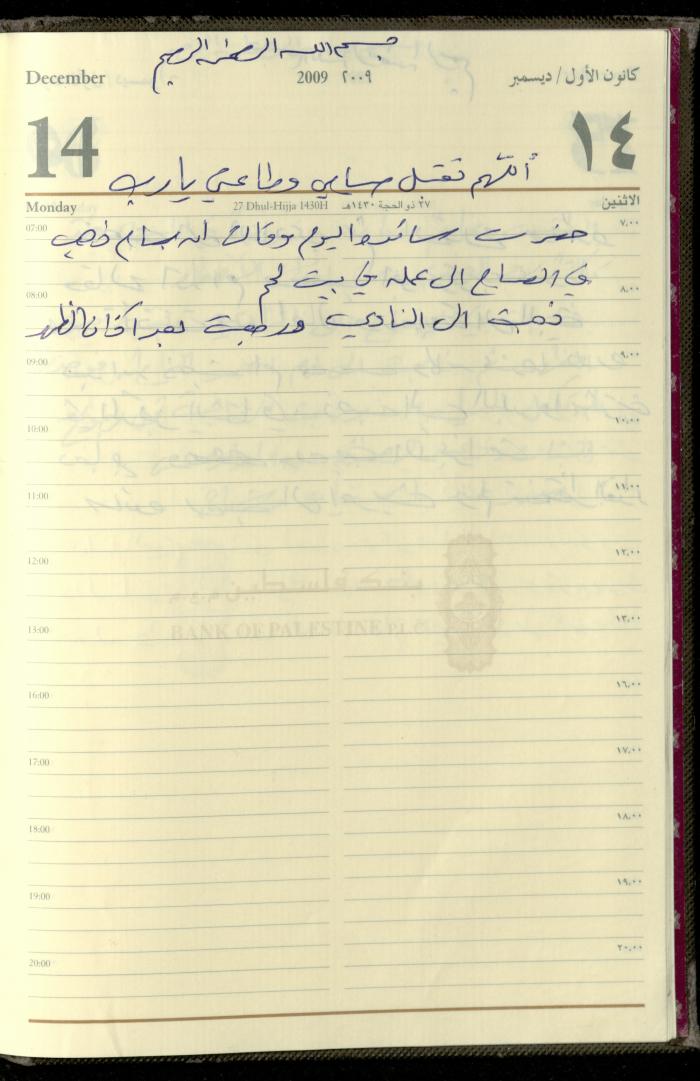 بسم الله الرحمن الرحيم
December 2009 ٢٠٠٩ كانون الأول / ديسمبر
14 ١٤
أللهم تقبل صيامي وطاعتي يارب
Monday 27 Dhul-Hijja 1430H ٢٧ ذو الحجة ١٤٣٠هـ الاثنين
07:00 ٧,٠٠
حضرت ساندوا اليوم وقالت ان بسام ذهب
في الصباح الى عمله في بيت لحم
08:00 ٨,٠٠
ذهبت الى النادي ورجعت بعد آذان الظهر
09:00 ٩,٠٠
10:00 ١٠,٠٠
11:00 ١١,٠٠
12:00 ١٢,٠٠
BANK OF PALESTINE P.L.C
13:00 ١٣,٠٠
16:00 ١٦,٠٠
17:00 ١٧,٠٠
18:00 ١٨,٠٠
19:00 ١٩,٠٠
20:00 ٢٠,٠٠